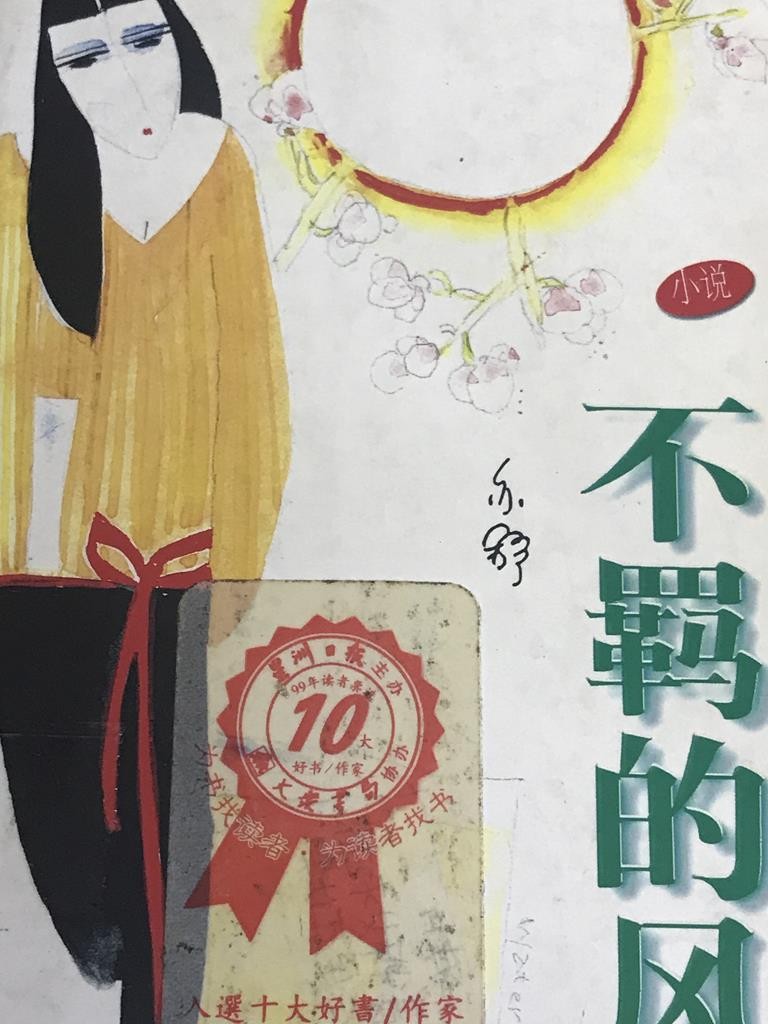 小说
不羁的风
亦舒
星洲日报主办
99年读者票选
10大
好书/作家
大众书局协办
为书找读者
为读者找书
入選十大好書/作家